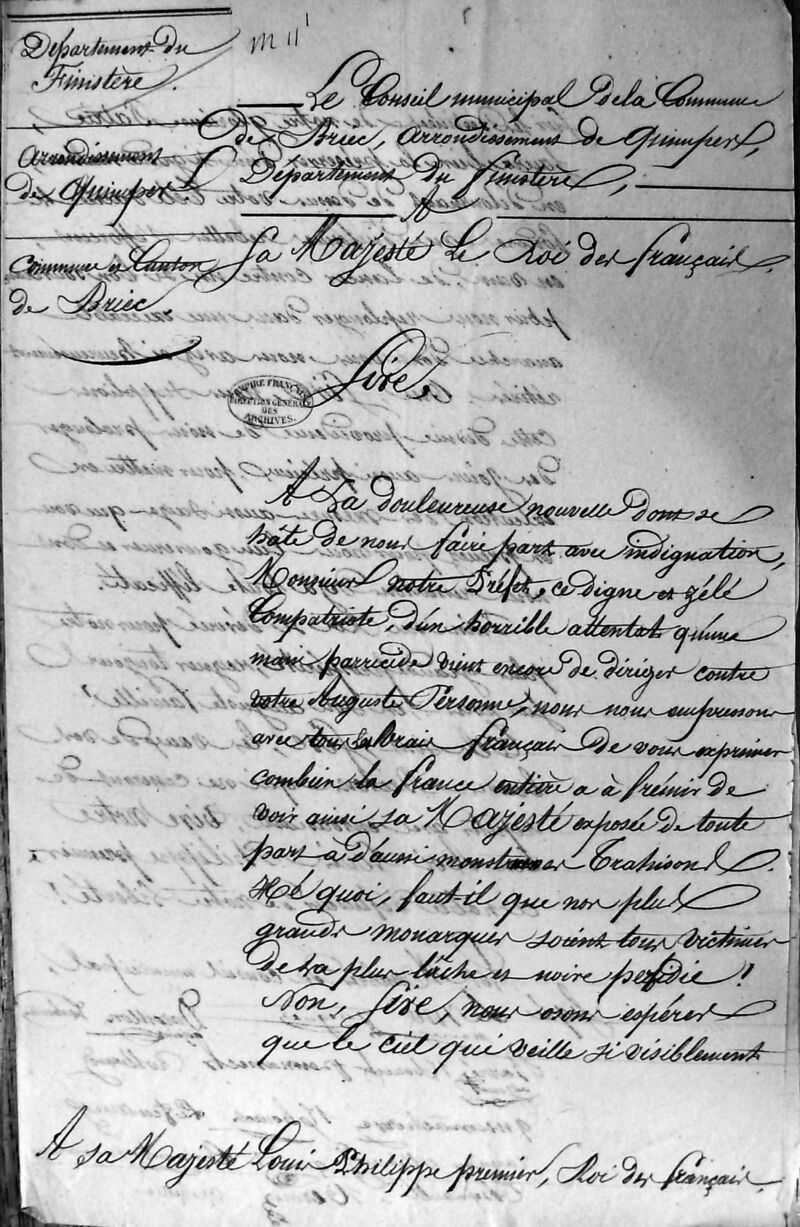 Département du
Finistère.
m 11
Arrondissement
de Quimper.
Commune et Canton
de Briéc.
Le Conseil municipal de la Commune
de Briéc, arrondissement de Quimper,
Département du finistère,
A
Sa Majesté Le Roi des français.
Sire,
EMPIRE FRANÇAIS
DIRECTION GÉNÉRALE
DES
ARCHIVES.
A La douleureuse nouvelle dont se
hâte de nous faire part avec indignation,
Monsieur notre Préfet, ce digne et zélé
Compatriote, d'un horrible attentat qu'une
main parricide vient encore de diriger contre
votre Auguste Personne, nous nous empressons
avec tous les vrais français de vous exprimer
combien la france entière a à frémir de
voir ainsi sa Majesté exposée de toute
part à d'aussi monstrueuses Trahisons.
Hé quoi, faut-il que nos plus
grands monarques soient tous victimes
de la plus lâche et noire perfidie !
Non, Sire, nous osons espérer
que le ciel qui veille si visiblement
A sa Majesté Louis Philippe premier, Roi des français.